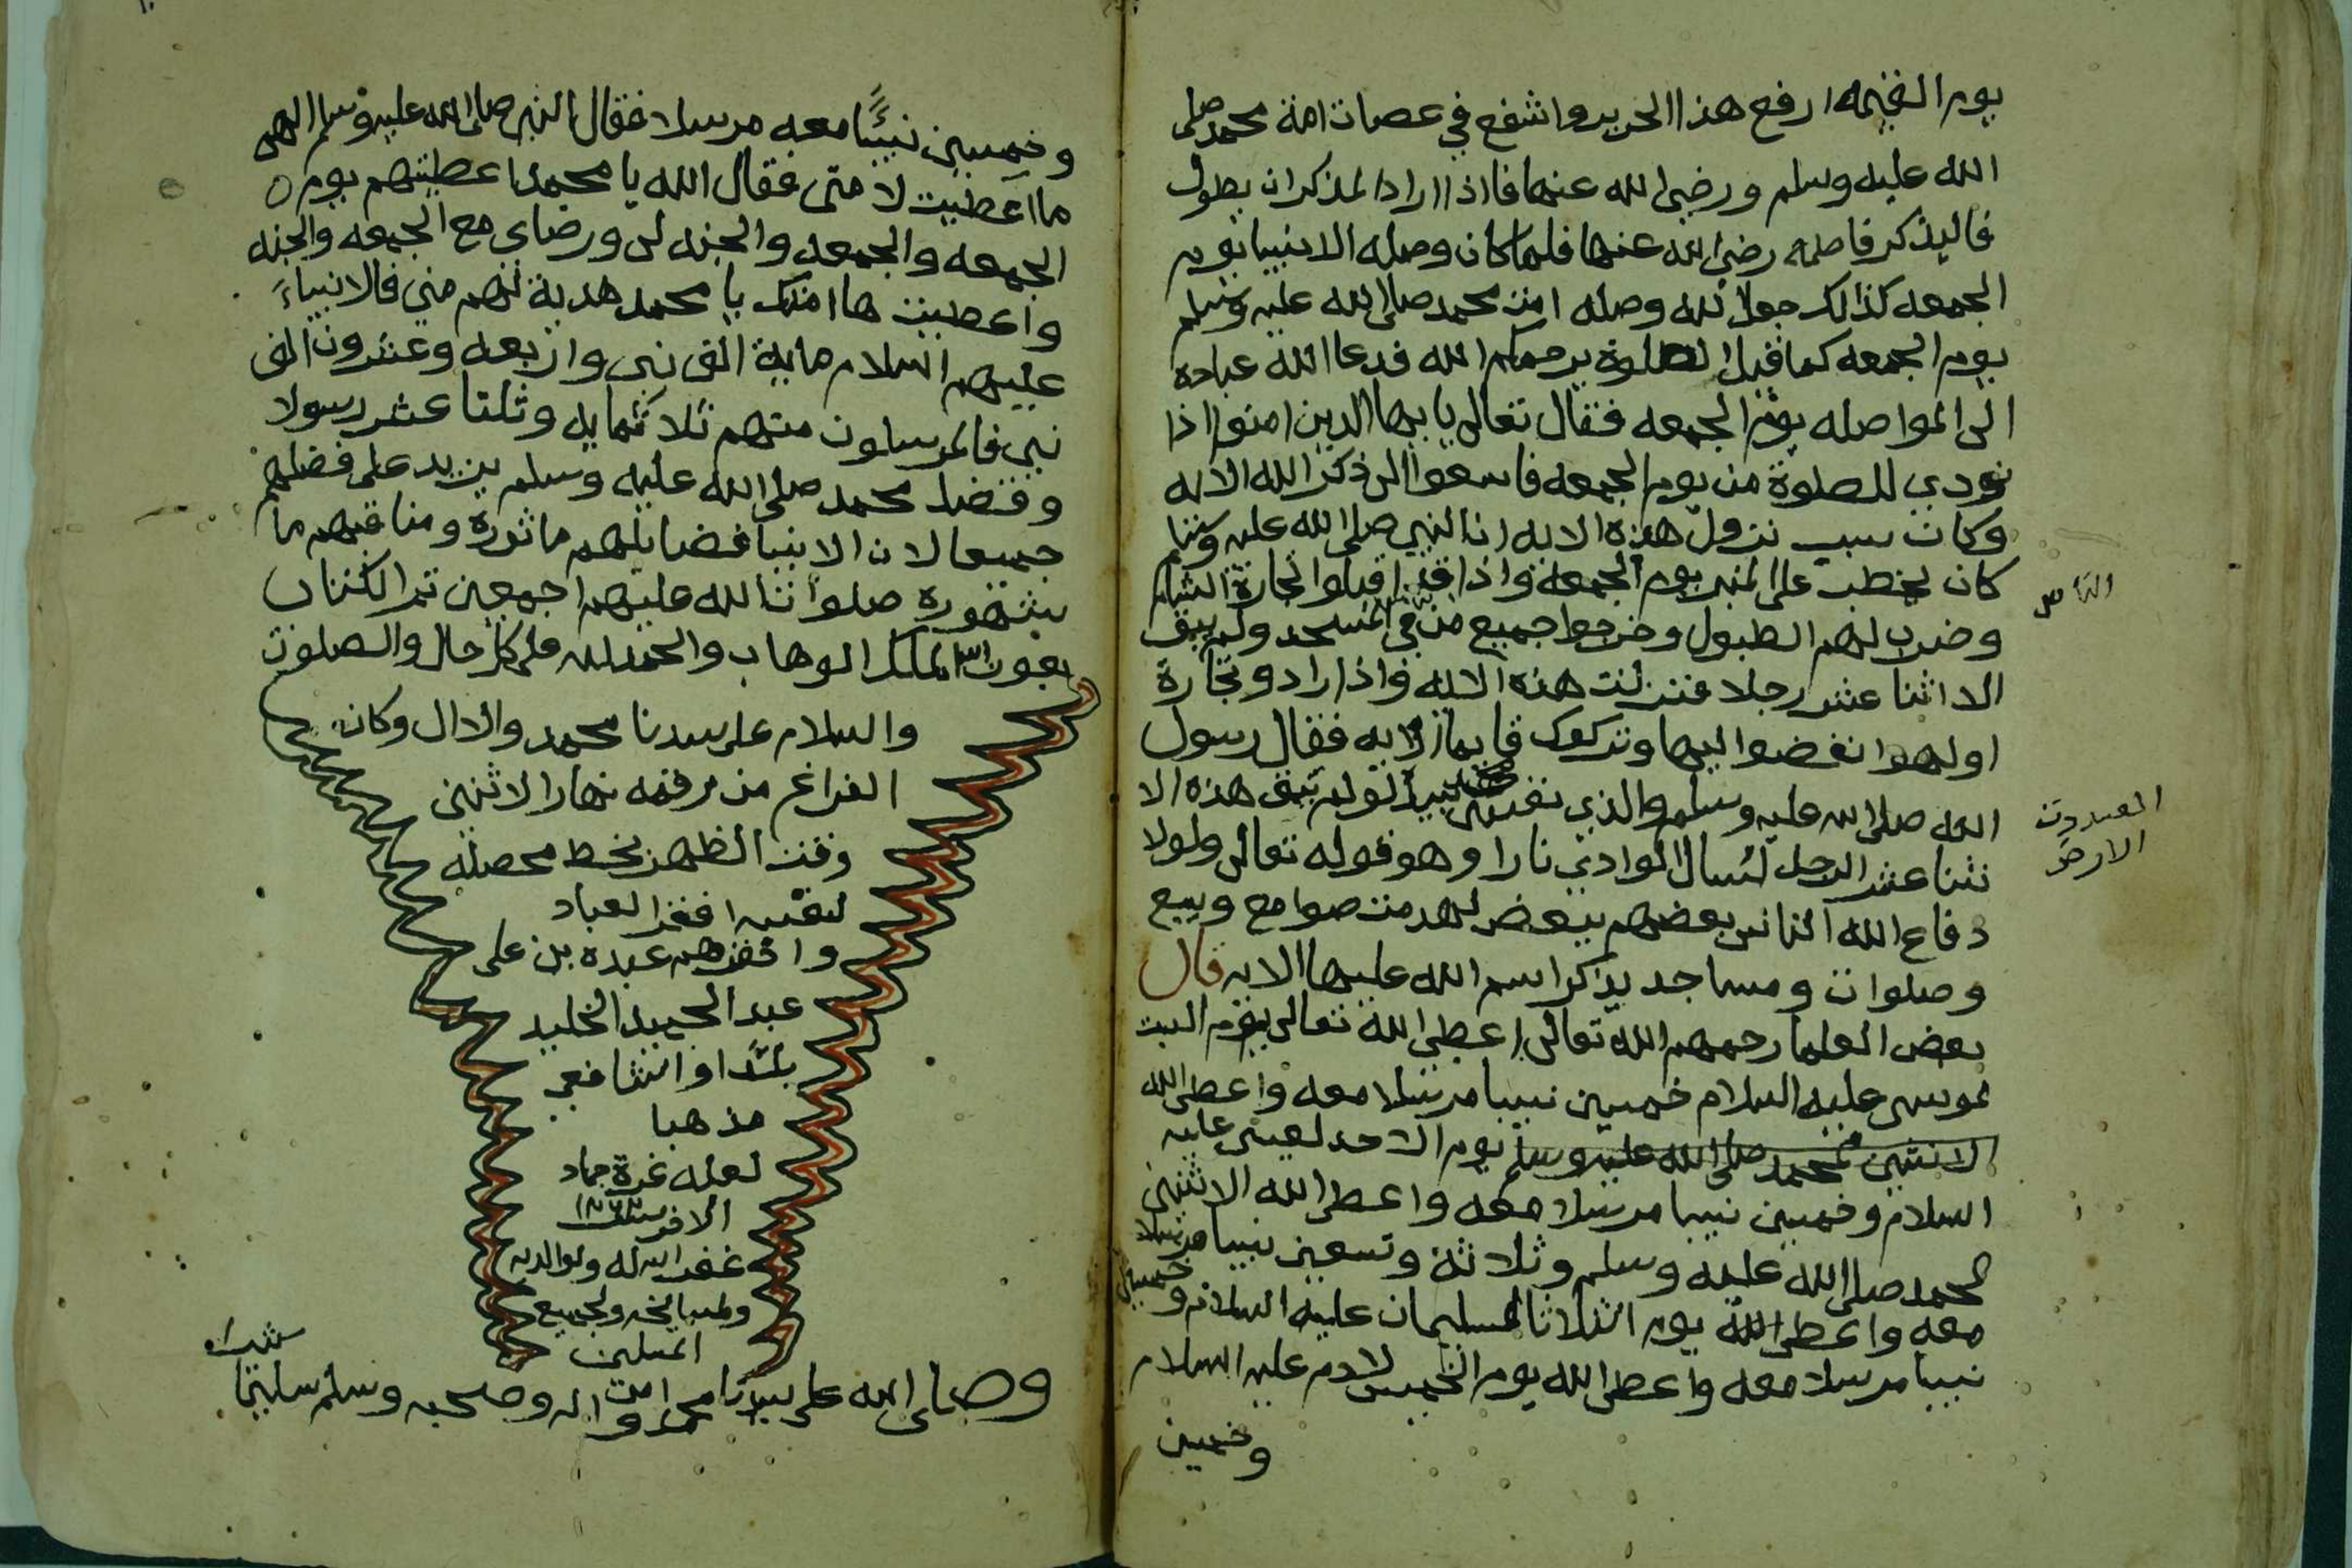 يوم القيمه ارفع هذا الحرير واشفع في عصات امة محمد صلى
الله عليه وسلم ورضي الله عنها فاذا اراد المذكر ان يطول
فاليذكر فاطمه رضي الله عنها فلما كان وصله الانبيا يوم
الجمعه كذالك جعل لله وصله امت محمد صلى الله عليه وسلم
يوم الجمعه كما قيل الصلوة يرحمكم الله فدعا الله عباده
الى المواصله يوم الجمعه فقال تعالى يايها الدين امنوا اذا
نودي للصلوة من يوم الجمعه فاسعوا الى ذكر الله الايه
وكان سبب نزول هذه الايه ان النبي صلى الله عليه وسلم
كان يخطب على المنبر يوم الجمعة واذا قد اقبلوا تجارة الشام
وضرب لهم الطبول وخرجوا جميع من في المسجد ولم يبق
الا اثنا عشر رجلا فنزلت هذه الايه واذا راد و تجارة
اولهوا نفضوا اليها وتركوك قايما الايه فقال رسول
الله صلى الله عليه وسلم والذي نفس محمد بيده لولم تبق هذه الا
ثنا عشر الرجل لسال الوادي نارا وهو قوله تعالى ولولا
دفاع الله الناس بعضهم ببعض لهدمت صوامع وبيع
وصلوات ومساجد يذكر اسم الله عليها الايه قال
بعض العلما رحمهم الله تعالى اعطى الله تعالى يوم السبت
لموسى عليه السلام خمسين نبيبا مرسلا معه واعطى الله
الاثنين لمحمد صلى الله عليه وسلم يوم الاحد لعيسى عليه
السلام وخمسين نبيبا مرسلا معه واعطى الله الاثنين
لمحمد صلى الله عليه وسلم وثلاثة وتسعين نبيبا مرسلا
معه واعطى الله يوم الثلاثا لسليمان عليه السلام وخمسين
نبيبا مرسلا معه واعطى الله يوم الخميس لادم عليه السلام
وخمسين
الارض
وخمسين نبيئًا معه مرسلا فقال النبي صلى الله عليه وسلم الهى
ما اعطيت لامتى فقال الله يا محمد اعطيتهم يوم
الجمعه والجمعه والجنه لى ورضاي مع الجمعه والجنه
واعطيت ها امتك يا محمد هدية لهم مني فالانبياء
عليهم السلام ماية الف نبى واربعه وعشرون الف
نبي فالمرسلون منهم ثلاثمايه وثلتا عشر رسولا
وفضل محمد صلى الله عليه وسلم يزيد على فضلهم
جميعا لان الانبيا فضايلهم ماثورة ومناقبهم ما
مشهوره صلوات الله عليهم اجمعين تم الكتاب
بعون الملك الوهاب والحمد لله على كل حال والصلوت
والسلام على سيدنا محمد والال وكان
الفراغ من رقمه نهار الاثنين
وقت الظهر بخط محصله
لنفسه افقر العباد
وافقرهم عبده بن على
عبد الحميد الخليد
بلدًا والشافعي
مذهبا
لعله غرة جماد
الاخر سنة
غفر الله له ولوالديه
ولمشايخه ولجميع
المسلمين
امين
وصلى الله على سيدنا محمد واله وصحبه وسلم تسليما